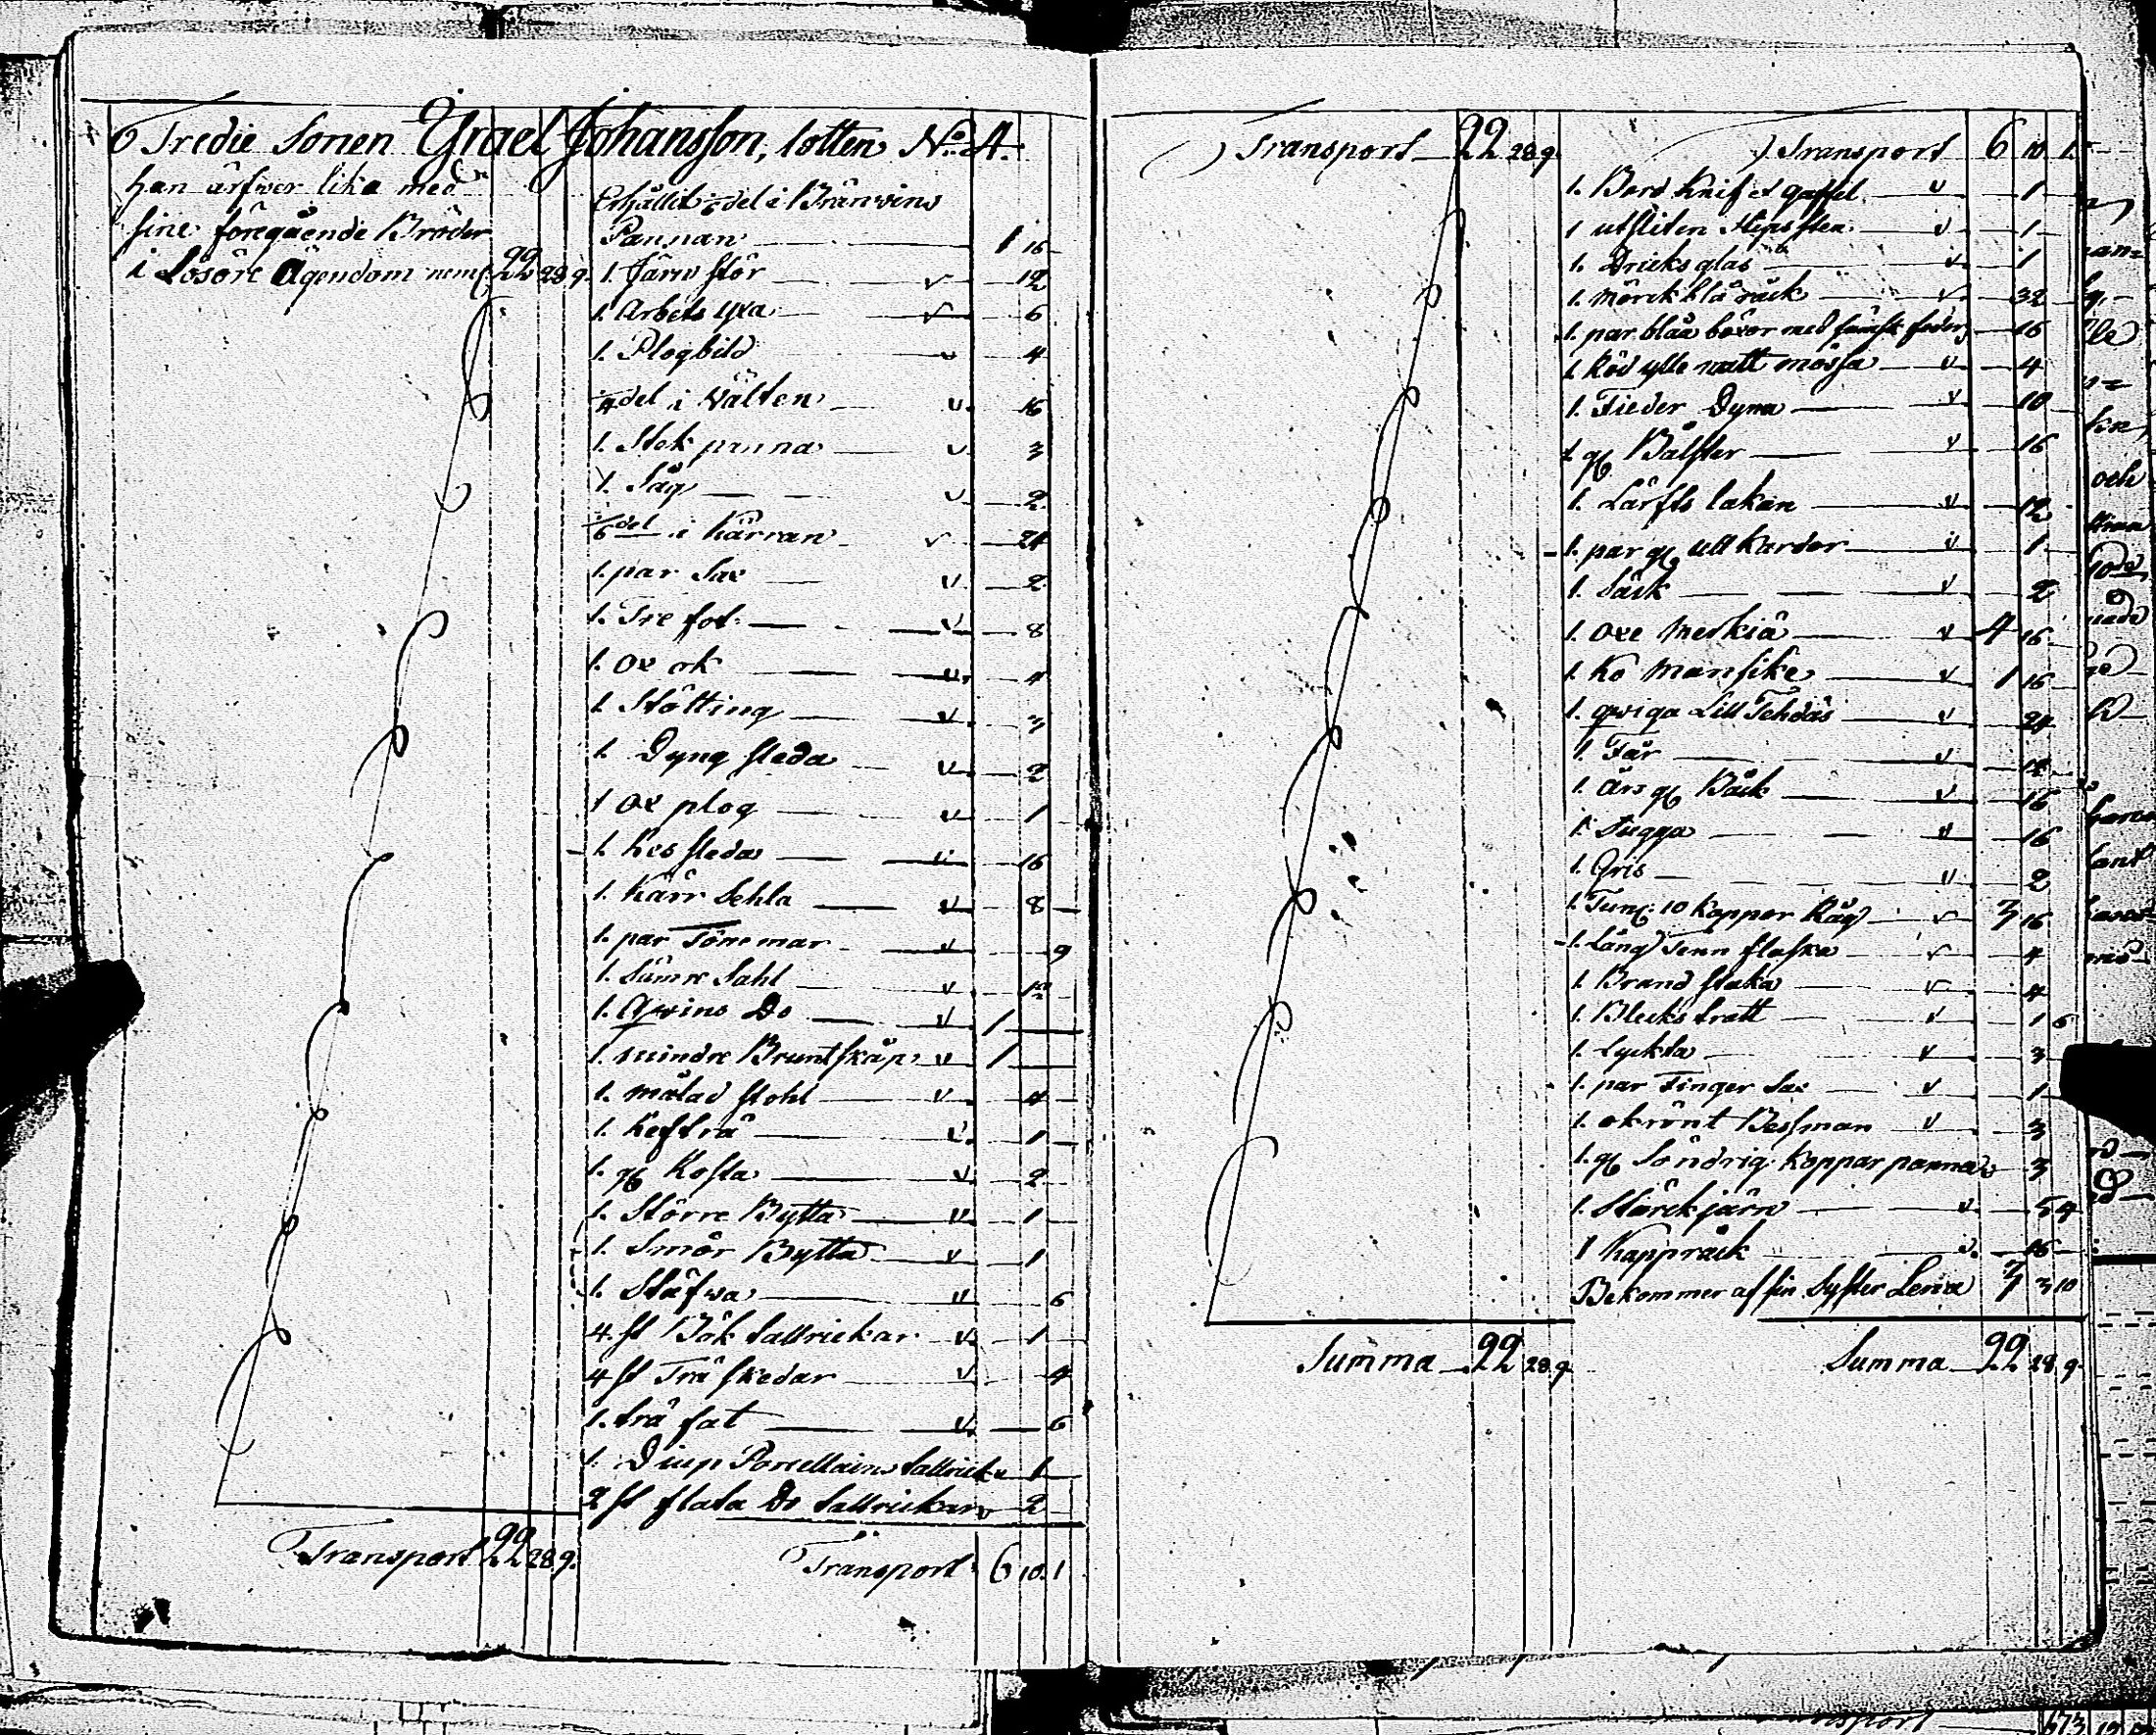 Tredie Sonen Ysrael Johansson, lotten No 4.
han ärfver lika med
sine föregående Bröder
i Lösöre Ägendom neml. 22 28 9.
Transport 22 28 9.
Erhållit 1/6 del i Bränvins
Pannan 1 16
1. Järn stör 12
1. Arbets yxa 6
1. Plogbild 4
1/4 del i Välten 16
1. Stek panna 3
1. Såg 2
1/6 del i Kärran 24
1. par Sax 2
1. Tre fot 8
1. Ox ok 4
1. Stötting 3
1. Dyng sleda 2
1 Ox plog 1
1. Res sleda 16
1. Kärr Sehla 8
1. par Tömmar 9
1. Sämre Sahl 12
1. Qvins Do 1
1. mindre Brunt skåp 1
1. målad stohl 4
1. Kafträ 1
1. gl Kosta 2
1. Större Bytta 1
1. Smör Bytta 1
1. Stäfva 6
4. st Bök tallrickar 1
4 st Trä skedar 4
1. trä fat 6
1. Diup Porcellains tallrick 1
2 st flata Do tallrickar 2
Transport 6 10. 1
Transport 22 28 9.
Summa 22 28 9
Transport 6 10 1
1. Bord Knif et gaffel 1
1 utsliten slipsten 1
1. Dricks glas 1
1. mörckblå råck 32
1. par blåa böxor med foder 16
1. Röd ylle natt mössa 4
1. Fieder Dyna 10
1 gl Bålster 16
1. Lärfts lakan 12
1. par gl ull Kardor 1
1. Säck 2
1. Oxe 4 16
1. Ko Mansike 1 16
1. qviga Lill 24
1. Får 12
1. års gl Båck 16
1. Sugga 16
1. Gris 2
1. Tun: 10 Kappar Råg 3 16
1. Lång Tenn flaska 4
1. Brand staka 4
1. Blecks tratt 1 6
1. Lyckta 3
1. par Finger Sax 1
1. okrönt Bessman 3
1. gl Söndrig Koppar panna 3
1. Stärckjärn 5 4
1 Kappråck 16
Bekommer af sin Syster Lena 7 3 10
Summa 22 28 9.